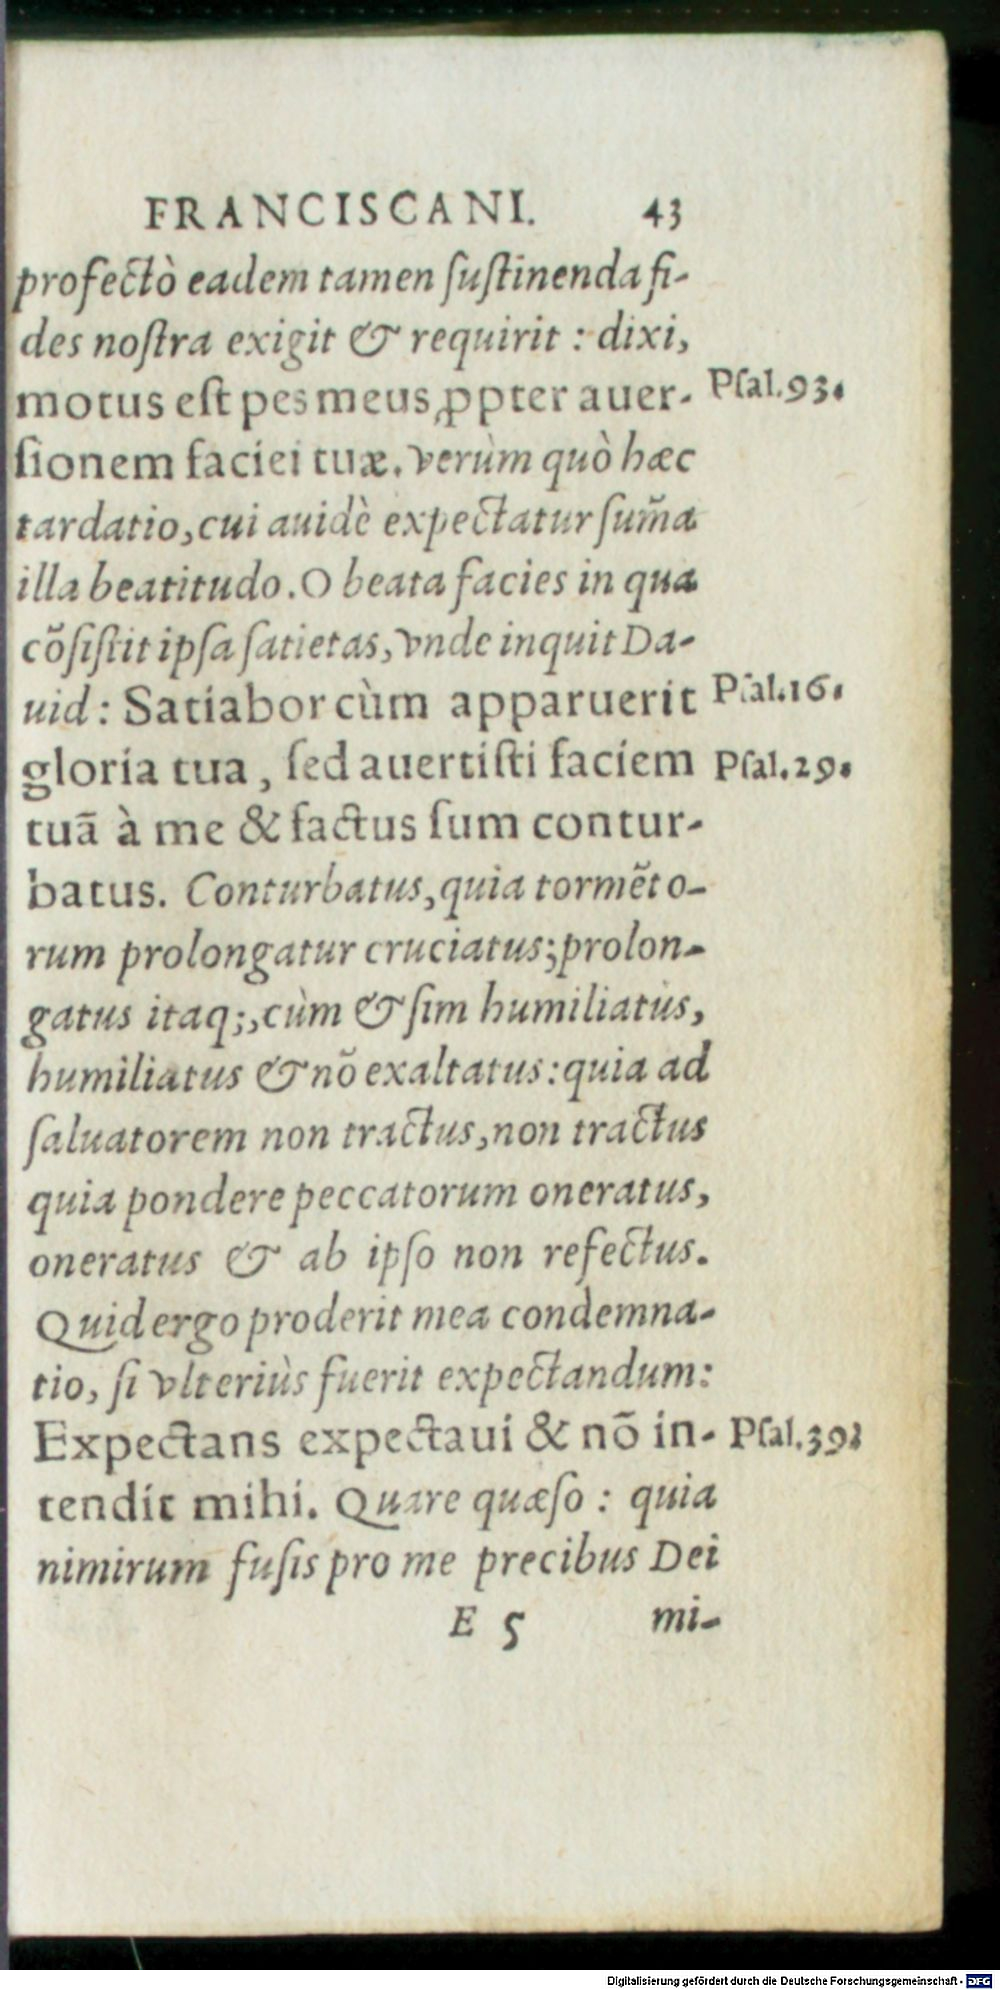 FRANCISCANI. 43
profectò eadem tamen ſuſtinenda fi-
des noſtra exigit & requirit : dixi,
motus eſt pes meus, ꝓpter auer- Pſal. 93.
ſionem faciei tuæ. verùm quò hæc
tardatio, cui auidè expectatur ſum̃a
illa beatitudo. O beata facies in qua
cõſiſtit ipſa ſatietas, vnde inquit Da-
uid : Satiabor cùm apparuerit Pſal. 16.
gloria tua, ſed auertiſti faciem Pſal. 29.
tuã à me & factus ſum contur-
batus. Conturbatus, quia tormẽto-
rum prolongatur cruciatus; prolon-
gatus itaq;, cùm & ſim humiliatus,
humiliatus & nõ exaltatus: quia ad
ſaluatorem non tractus, non tractus
quia pondere peccatorum oneratus,
oneratus & ab ipſo non refectus.
Quid ergo proderit mea condemna-
tio, ſi vlteriùs fuerit expectandum:
Expectans expectaui & nõ in- Pſal. 39.
tendit mihi. Quare quæſo : quia
nimirum fuſis pro me precibus Dei
E 5 mi-
Digitalisierung gefördert durch die Deutsche Forschungsgemeinschaft - DFG